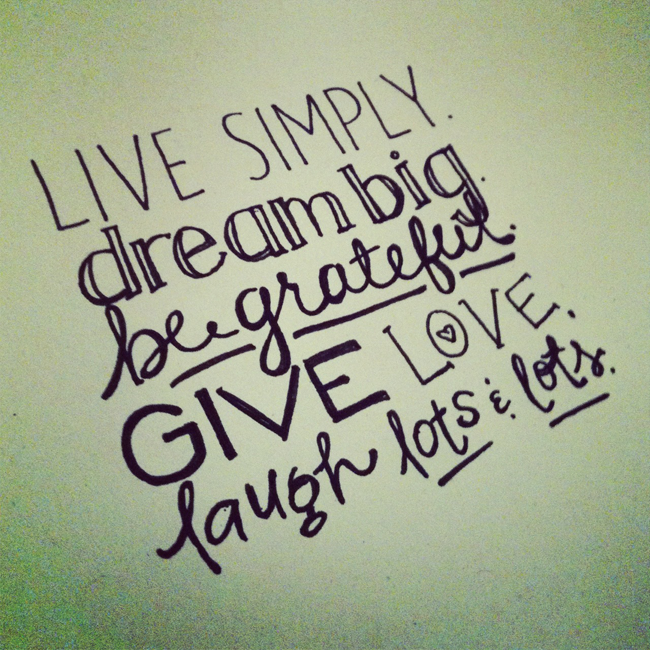 LIVE SIMPLY.
dream big.
be grateful.
GIVE LOVE.
laugh lots & lots.